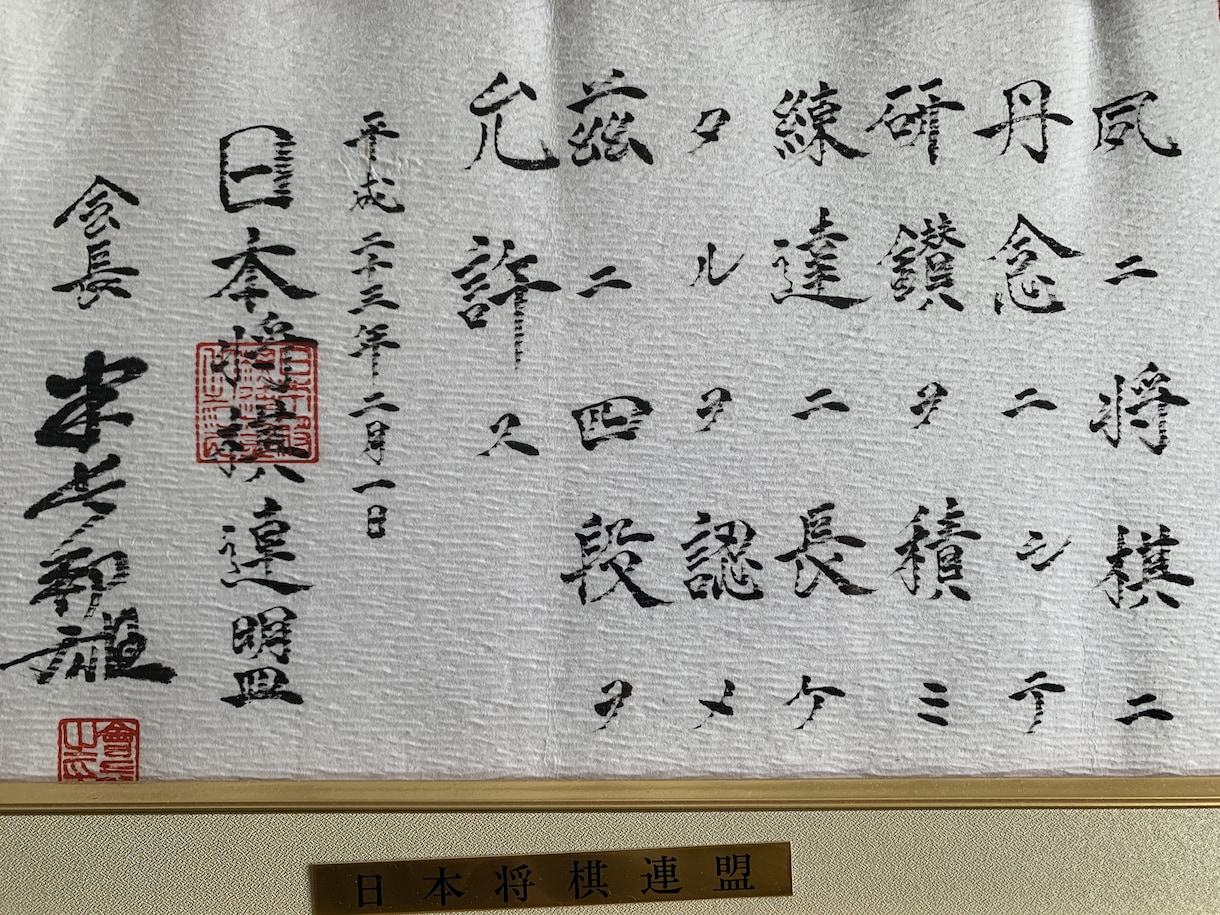 夙ニ将棋ニ
丹念ニシテ
研鑽ヲ積ミ
練達ニ長ケ
タルヲ認メ
茲ニ四段ヲ
允許ス
平成二十三年二月一日
日本将棋連盟
会長 米長邦雄
日本将棋連盟